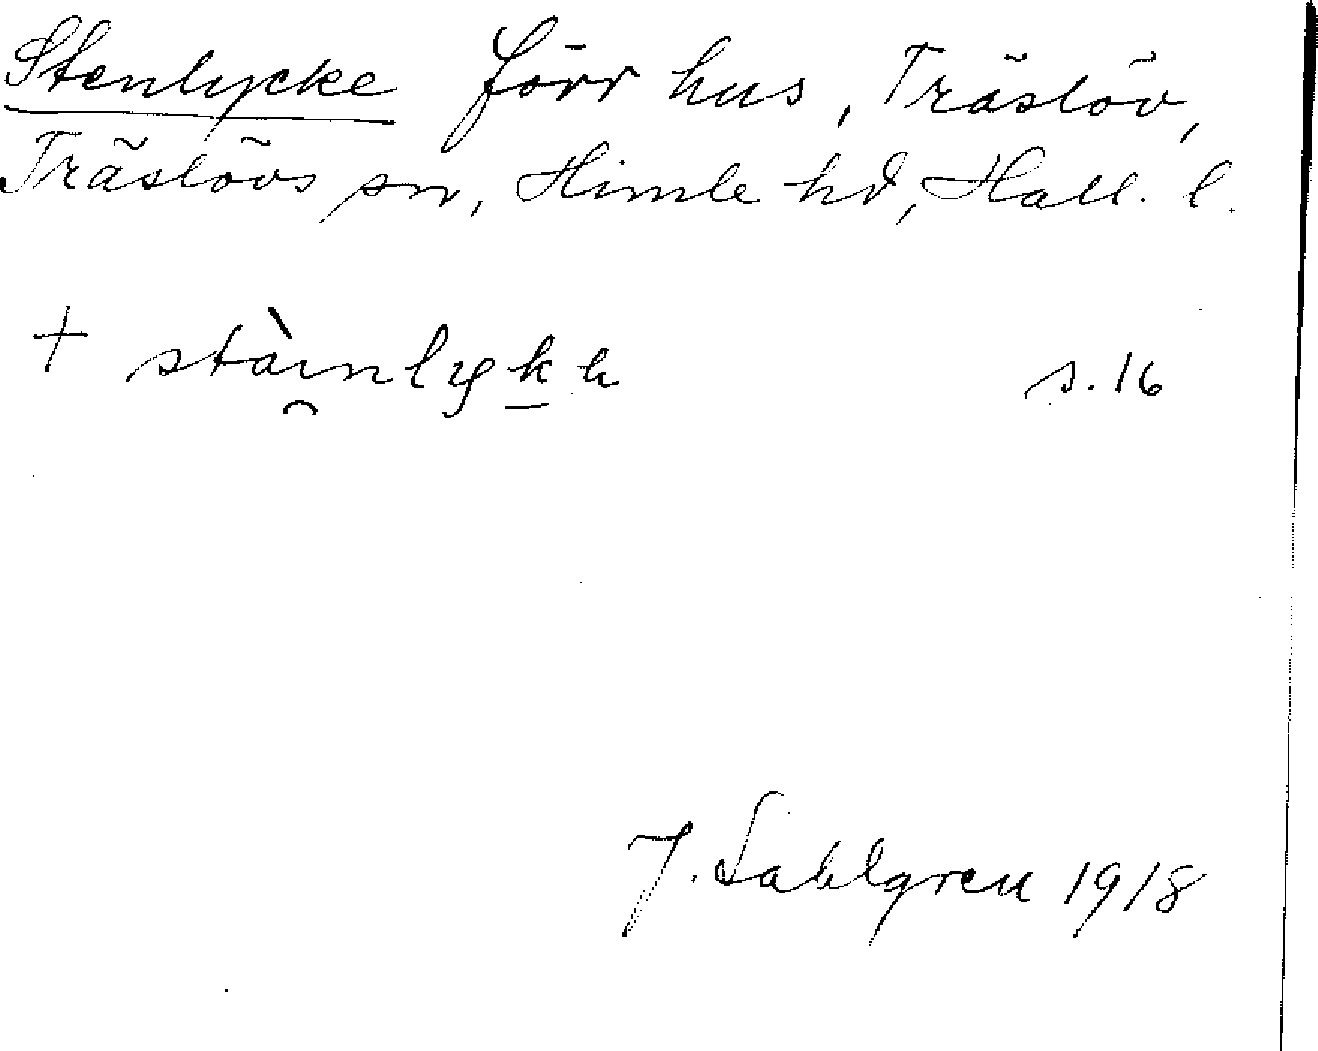 Stenlycke förr hus, Träslöv,
Träslövs sn, Himle hd, Hall. l.
+ s. 16
J. Sahlgren 1918